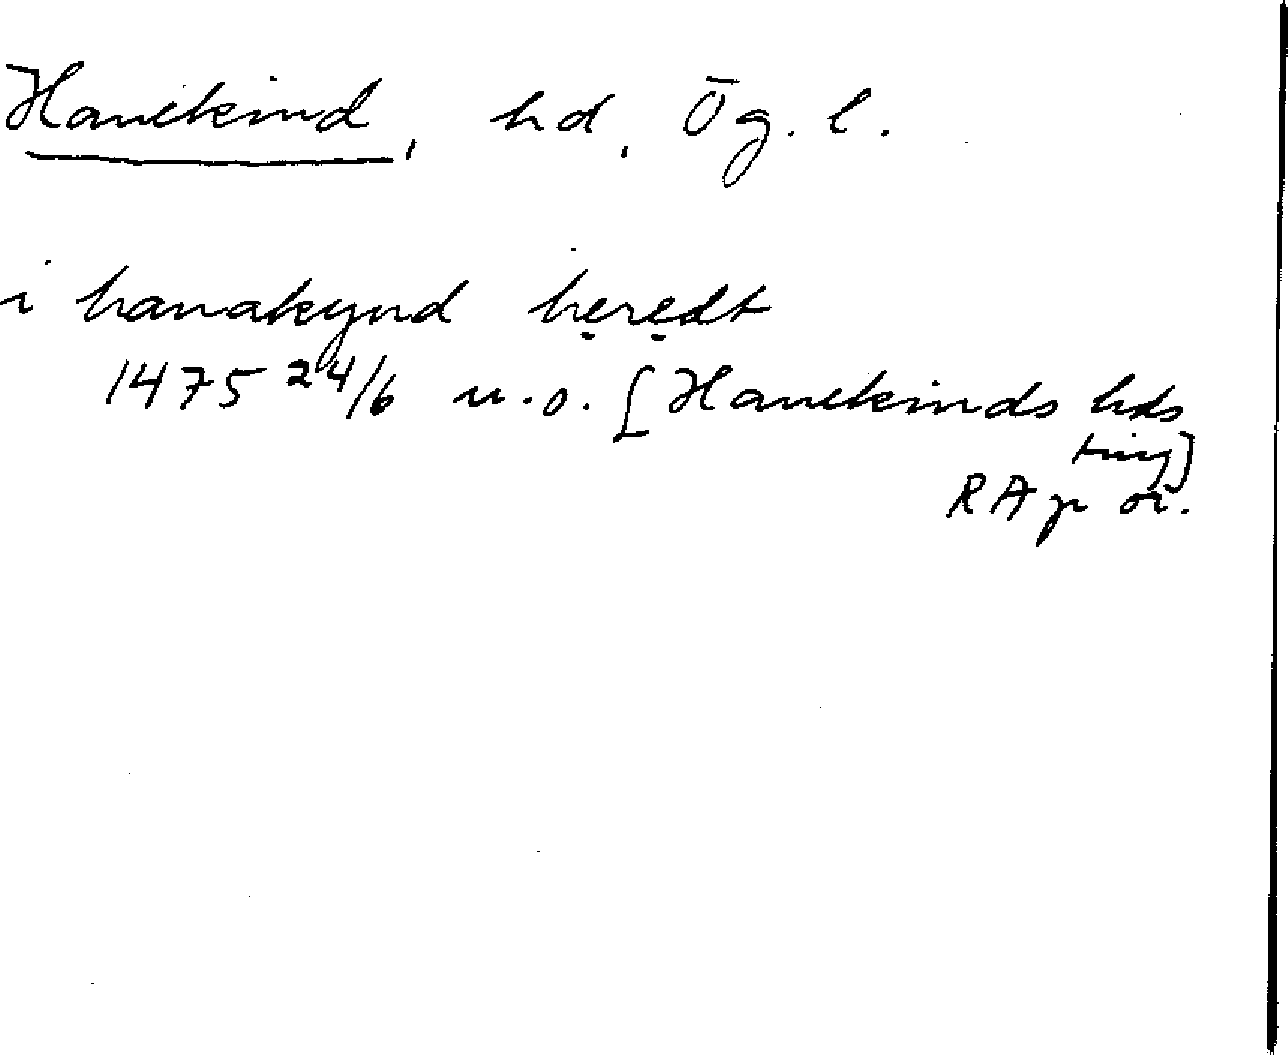 Hanekind, hd, Ög. l.
i hanakynd hẹrẹdt
1475 24/6 u.o. [Hanekinds hds
ting]
RAp or.